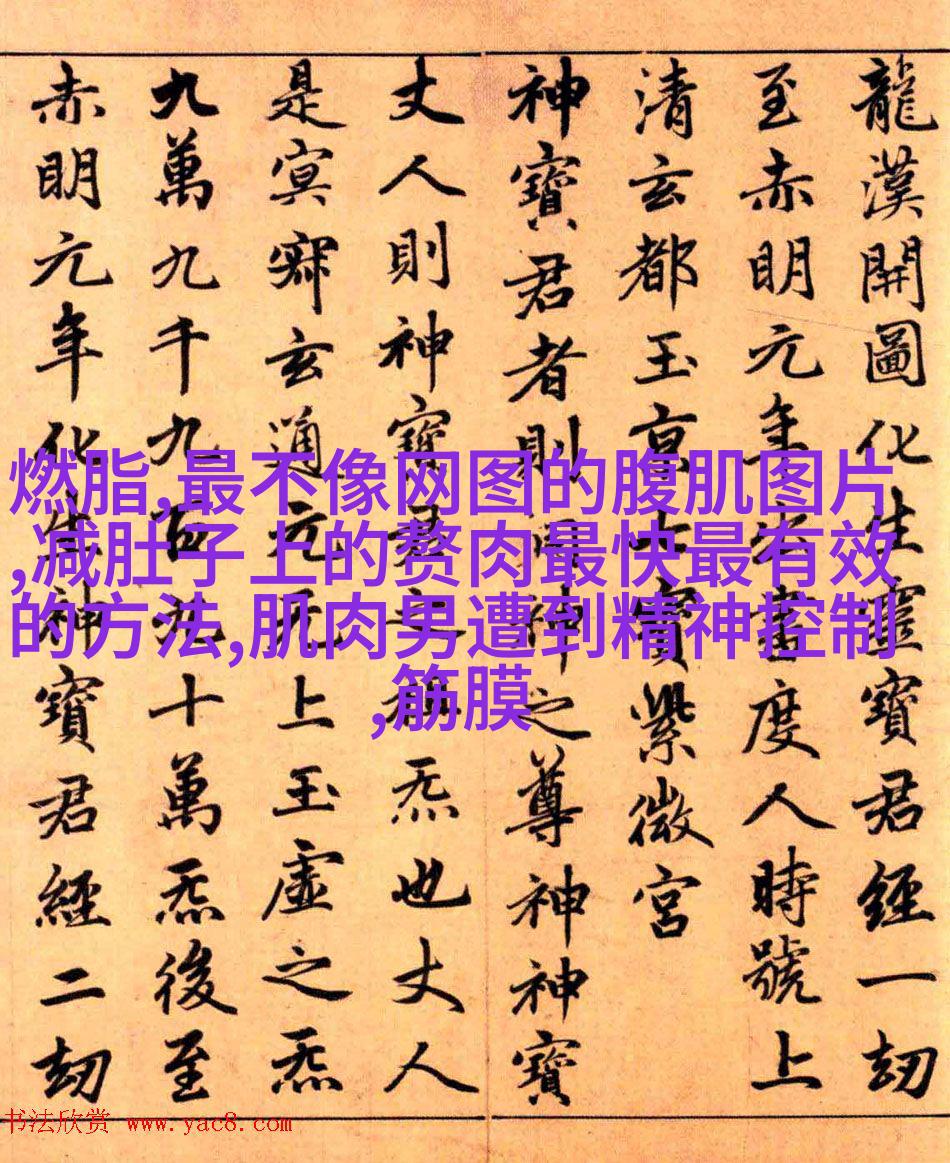 龍漢開圖化生靈寶君經一劫
至赤明元年出書度人時號上
清玄都玉京七寶紫微宮
神寶君者則洞神之尊神神寶
丈人則神寶君之祖炁也丈人
是冥寂玄通元无上玉虛之炁
九萬九千九百九十萬炁後至
赤明元年化生神寶君經二劫
燃脂,最不像网图的腹肌图片
,减肚子上的赘肉最快最有效
的方法,肌肉男遭到精神控制
,筋膜
书法欣赏 www.yac8.com